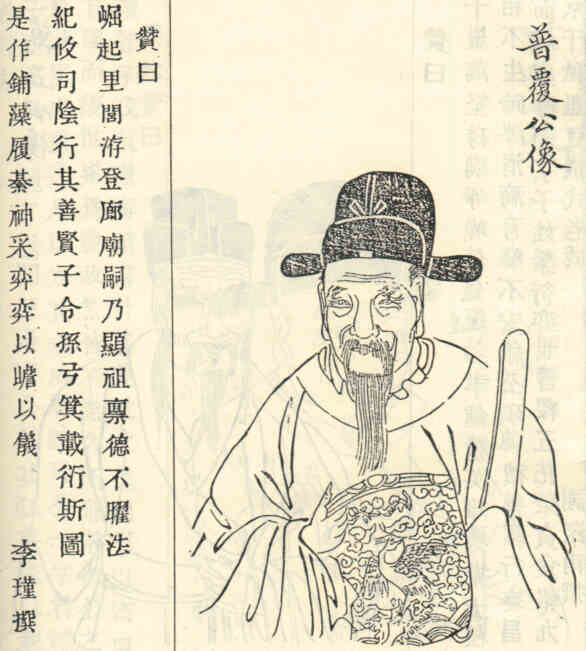 普覆公像
贊曰
崛起里閭洊登廊廟嗣乃顯祖禀德不矅法
紀攸司陰行其善賢子令孫弓箕載衍斯圖
是作鋪藻履綦神采弈弈以瞻以儀 李瑾撰